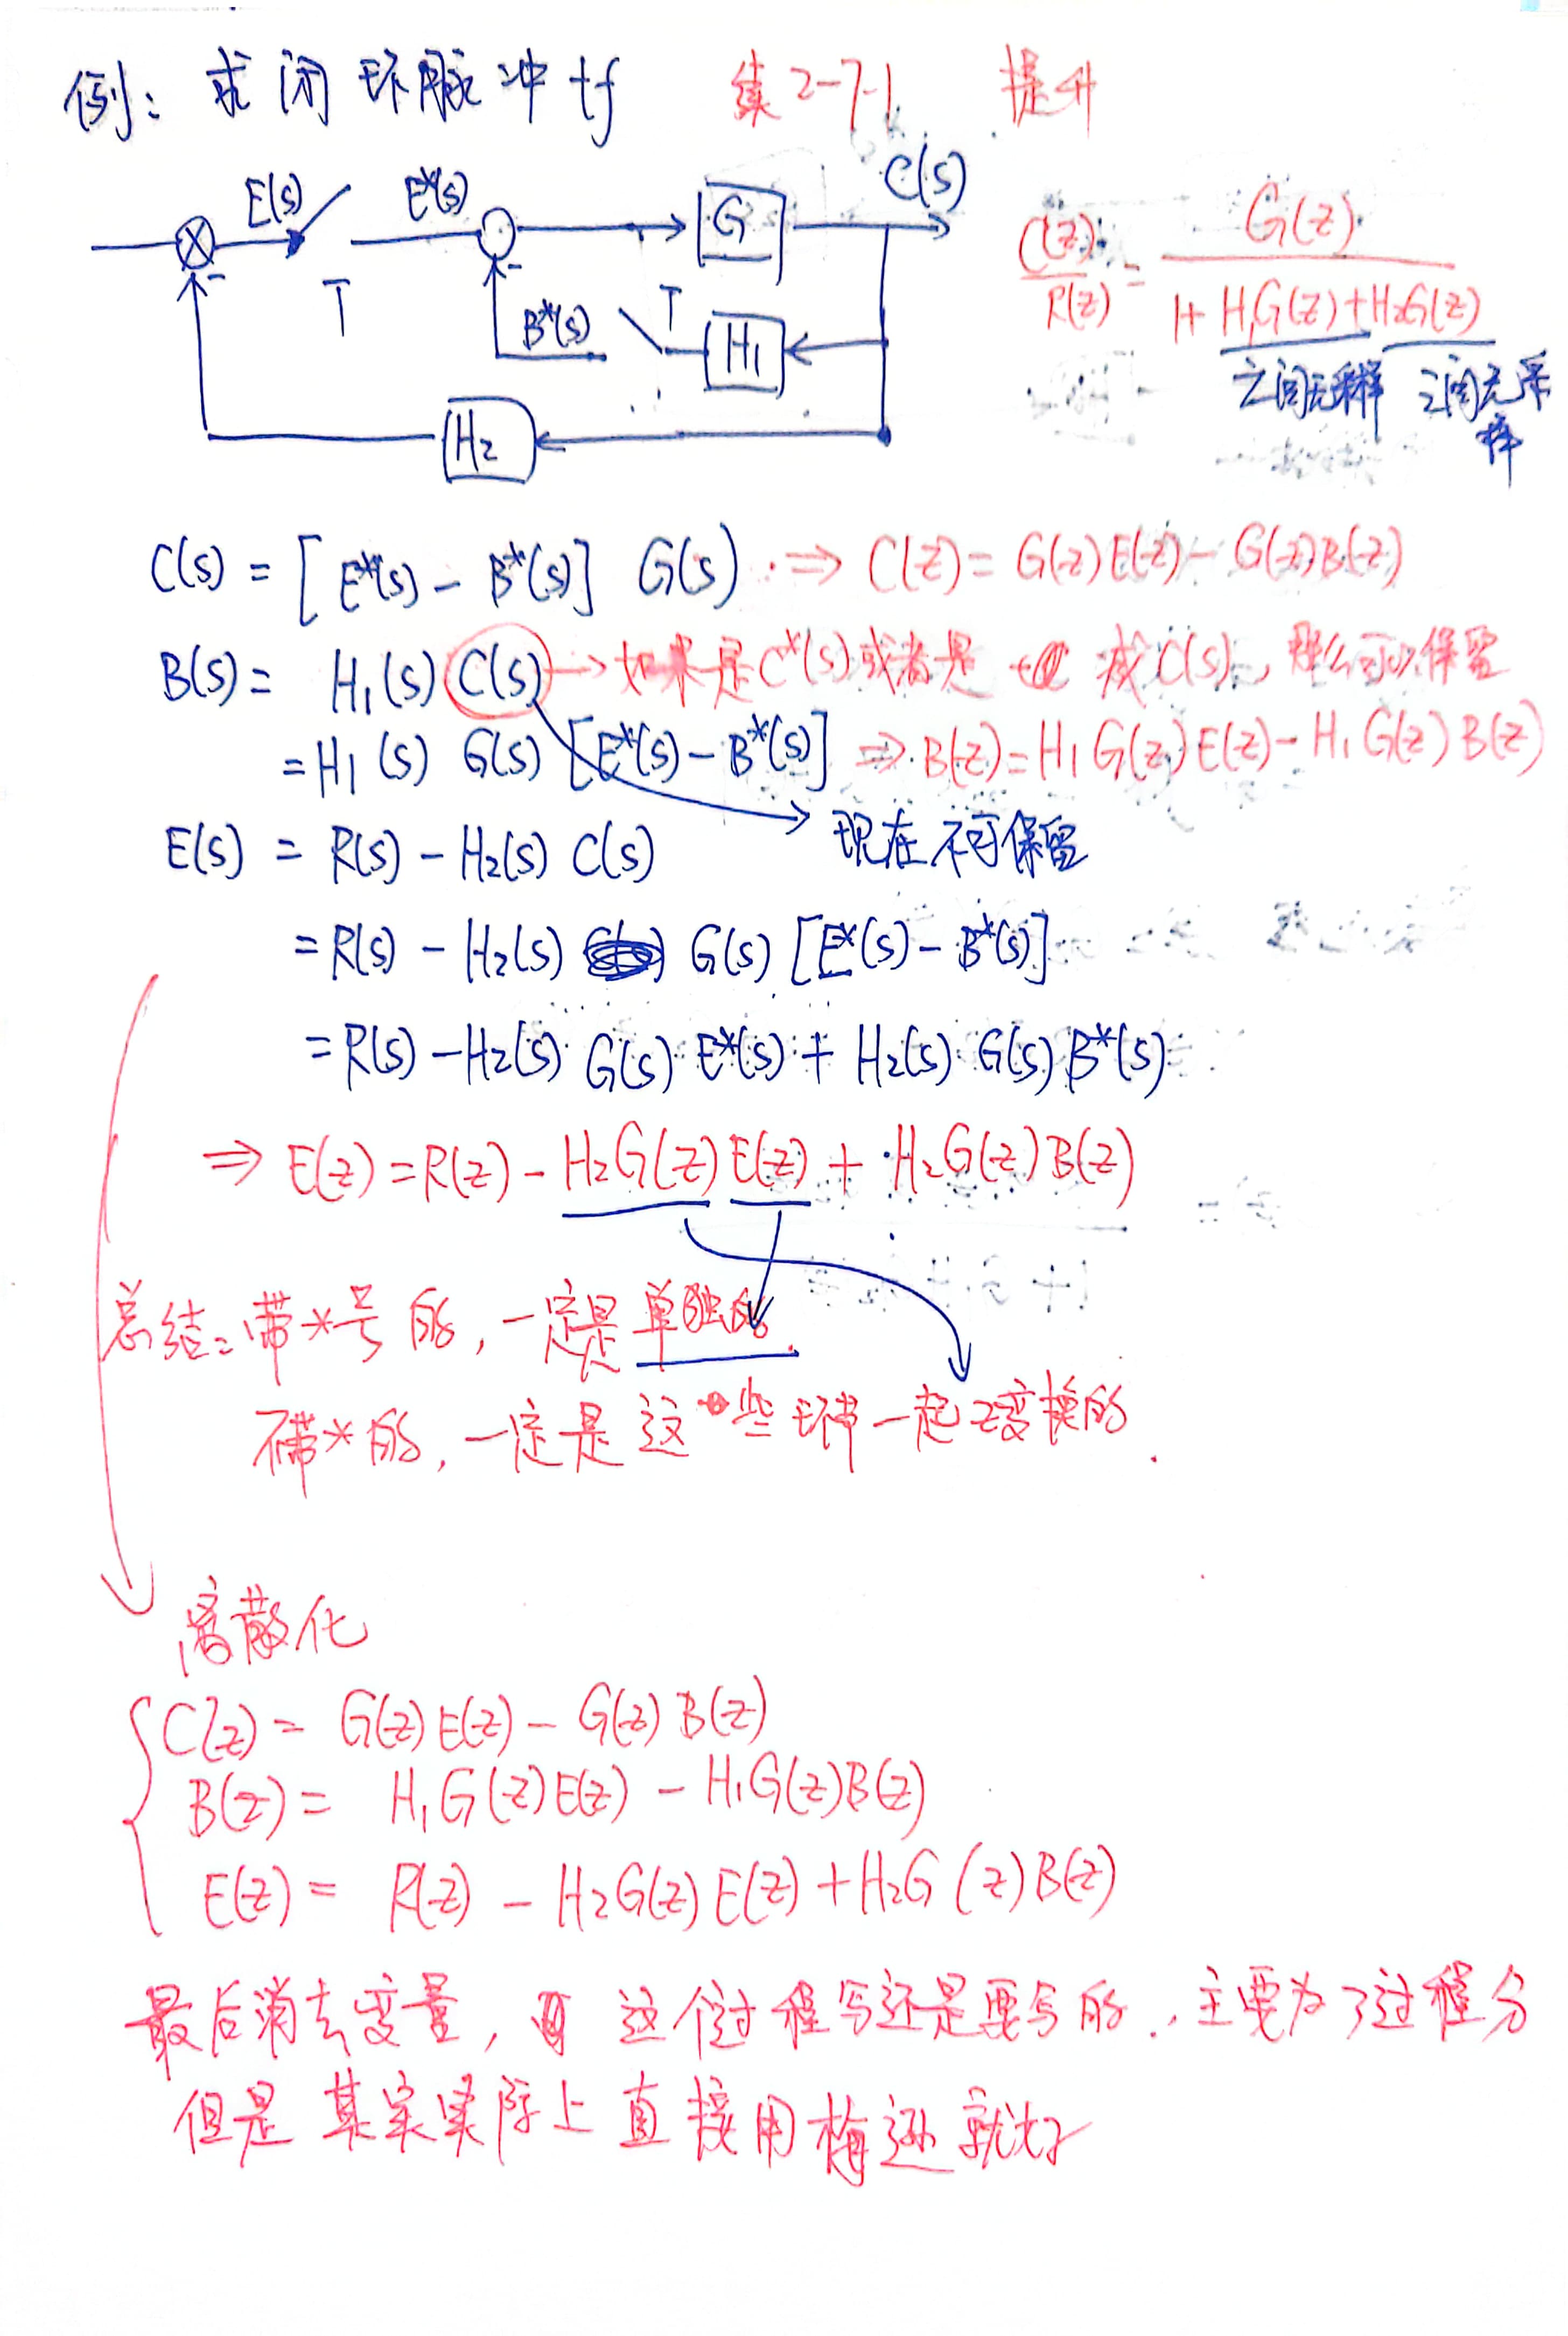 例：求闭环脉冲tf 续2-7-1 提升
E(s) E*(s) G C(s)
T B*(s) T H₁
H₂
C(z)/R(z) = G(z) / (1+H₁G(z)+H₂G(z))
之间无采样 之间无采样
C(s) = [E*(s) - B*(s)] G(s) ⇒ C(z) = G(z)E(z) - G(z)B(z)
B(s) = H₁(s) C(s) → 如果是C*(s)或者是 成C(s)，那么可以保留
= H₁(s) G(s) [E*(s) - B*(s)] ⇒ B(z) = H₁G(z)E(z) - H₁G(z)B(z)
现在不可保留
E(s) = R(s) - H₂(s) C(s)
= R(s) - H₂(s) G(s) [E*(s) - B*(s)]
= R(s) - H₂(s) G(s) E*(s) + H₂(s) G(s) B*(s)
⇒ E(z) = R(z) - H₂G(z)E(z) + H₂G(z)B(z)
总结：带*号的，一定是单独的.
不带*的，一定是这些环节一起z变换的.
离散化
C(z) = G(z)E(z) - G(z)B(z)
B(z) = H₁G(z)E(z) - H₁G(z)B(z)
E(z) = R(z) - H₂G(z)E(z) + H₂G(z)B(z)
最后消去变量，这个过程写还是要写的.，主要为了过程分
但是其实实际上直接用梅逊就好